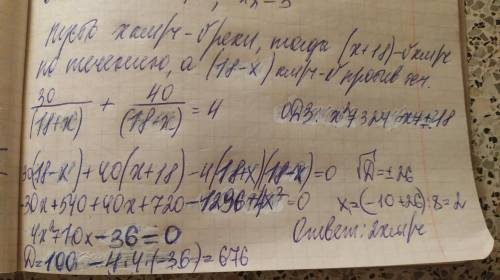 Пусть х км/ч - υ реки, тогда (х+18) - υ км/ч
по течению, а (18-х) км/ч - υ против теч.
30/(18+х) + 40/(18+х) = 4 ОДЗ: х²≠324 х≠±18
30(18-х)+40(х+18)-4(18+х)(18-х)=0 √D=±26
-30х+540+40х+720-1296+4х²=0 х=(-10+26):8=2
4х²+10х-36=0 Ответ: 2 км/ч
D=100-4·4·(-36)=676